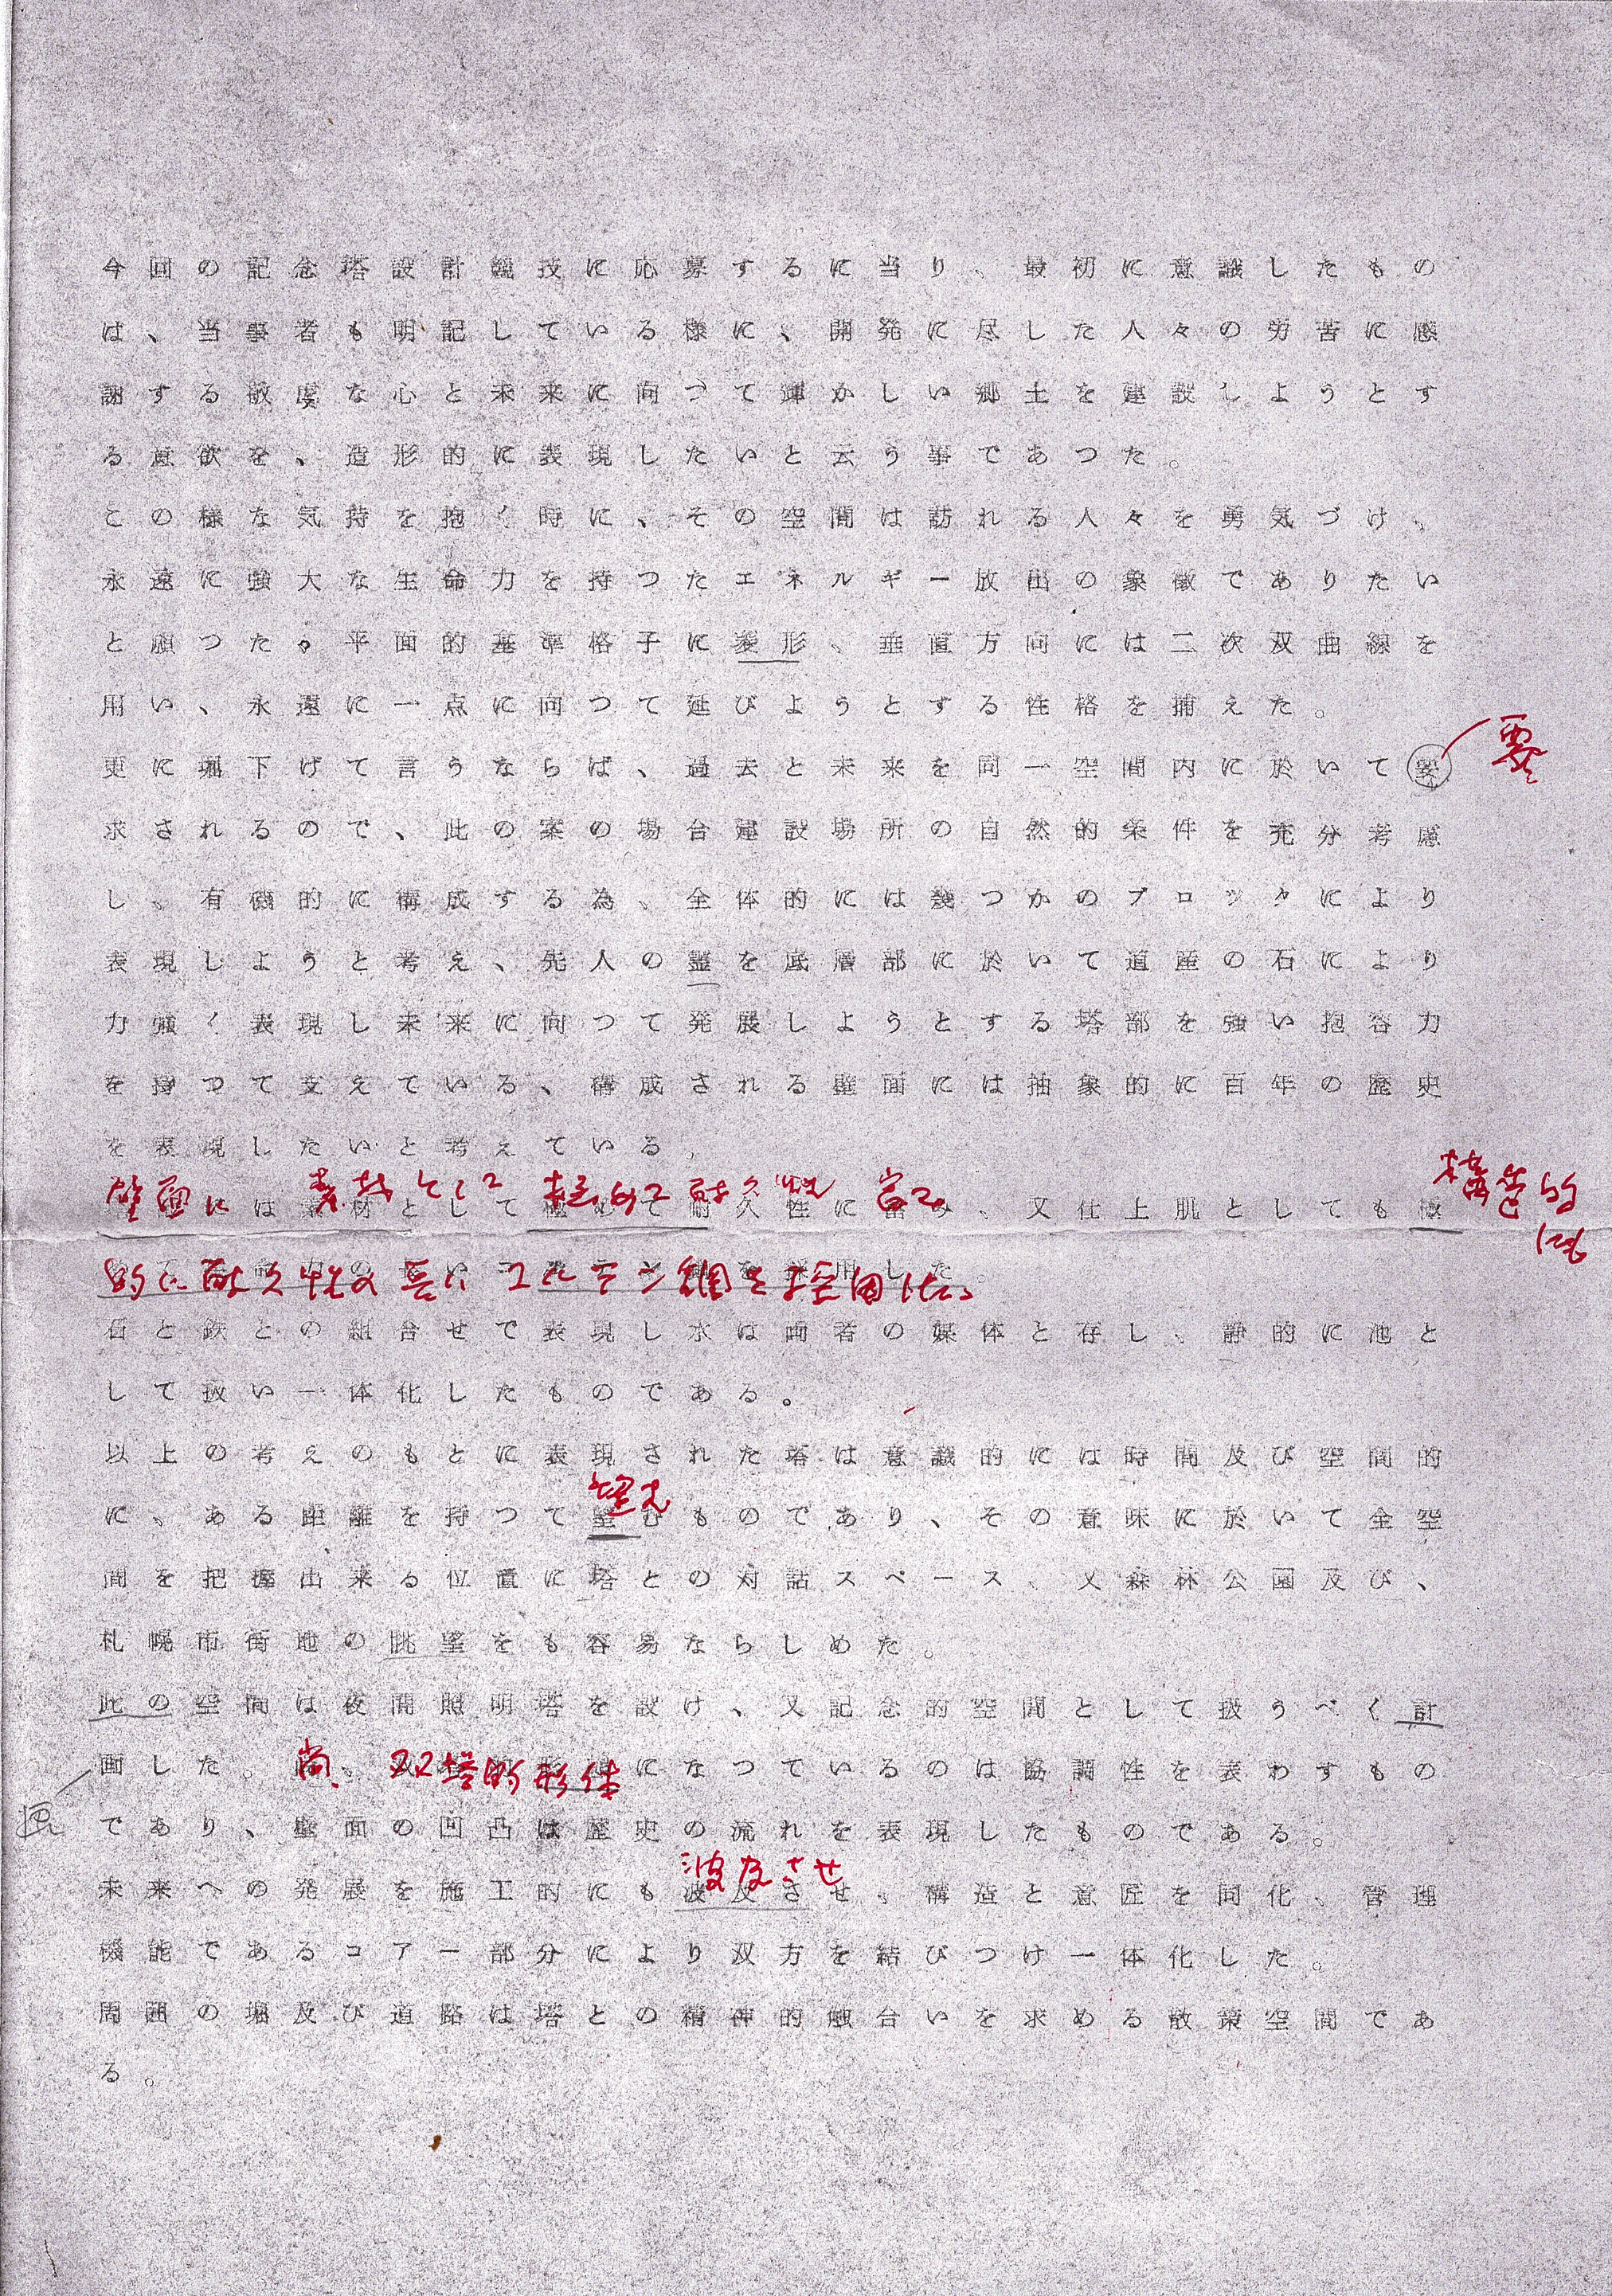 今回の記念塔設計競技に応募するに当り、最初に意識したもの
は、当事者も明記している様に、開発に尽した人々の労苦に感
謝する敬虔な心と未来に向つて輝かしい郷土を建設しようとす
る意欲を、造形的に表現したいと云う事であつた。
この様な気持を抱く時に、その空間は訪れる人々を勇気づけ、
永遠に強大な生命力を持つたエネルギー放出の象徴でありたい
と願つた。平面的基準格子に菱形、垂直方向には二次双曲線を
用い、永遠に一点に向つて延びようとする性格を捕えた。
要
更に掘下げて言うならば、過去と未来を同一空間内に於いて要
求されるので、此の案の場合建設場所の自然的条件を充分考慮
し、有機的に構成する為、全体的には幾つかのブロックにより
表現しようと考え、先人の霊を底層部に於いて道産の石により
力強く表現し未来に向つて発展しようとする塔部を強い抱容力
を持つて支えている、構成される壁面には抽象的に百年の歴史
を表現したいと考えている。
壁面に 素材として 極めて耐久性 富み 構造的にも
は素材として極めて耐久性に富み、又仕上肌としても
的に耐久性の長い コルテン鋼を採用した。
石と鉄との組合せで表現し水は両者の媒体と存し、静的に池と
して扱い一体化したものである。
以上の考えのもとに表現された塔は意識的には時間及び空間的
望む
に、ある距離を持つて望むものであり、その意味に於いて全空
間を把握出来る位置に塔との対話スペース、又森林公園及び、
札幌市街地の眺望をも容易ならしめた。
此の空間は夜間照明塔を設け、又記念的空間として扱うべく計
尚、双塔的形体
画した。になつているのは協調性を表わすもの
画
であり、壁面の凹凸は歴史の流れを表現したものである。
波及させ
未来への発展を施工的にも波及させ、構造と意匠を同化、管理
機能であるコアー部分により双方を結びつけ一体化した。
周囲の堀及び道路は塔との精神的触合いを求める散策空間であ
る。